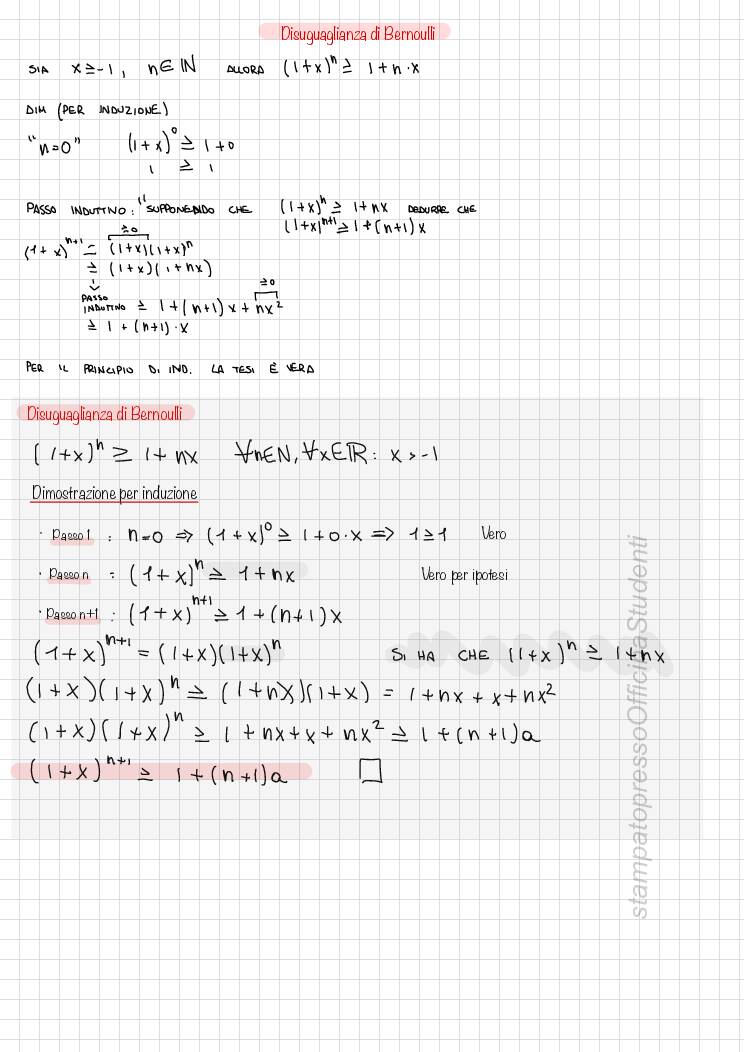 Disuguaglianza di Bernoulli
SIA x ≥ -1, n ∈ ℕ ALLORA (1+x)^n ≥ 1+n·x
DIM (PER INDUZIONE)
"n=0" (1+x)^0 ≥ 1+0
1 ≥ 1
PASSO INDUTTIVO: "SUPPONENDO CHE (1+x)^n ≥ 1+nx DEDURRE CHE
(1+x)^{n+1} ≥ 1+(n+1)x
≥0
(1+x)^{n+1} = (1+x)(1+x)^n
≥ (1+x)(1+nx)
≥0
PASSO
INDUTTIVO ≥ 1+(n+1)x+nx²
≥ 1+(n+1)·x
PER IL PRINCIPIO DI IND. LA TESI È VERA
Disuguaglianza di Bernoulli
(1+x)^n ≥ 1+nx ∀n∈N, ∀x∈ℝ: x>-1
Dimostrazione per induzione
· Passo 1 : n=0 ⇒ (1+x)^0 ≥ 1+0·x ⇒ 1≥1 Vero
· Passo n : (1+x)^n ≥ 1+nx Vero per ipotesi
· Passo n+1 : (1+x)^{n+1} ≥ 1+(n+1)x
(1+x)^{n+1} = (1+x)(1+x)^n SI HA CHE (1+x)^n ≥ 1+nx
(1+x)(1+x)^n ≥ (1+nx)(1+x) = 1+nx+x+nx²
(1+x)(1+x)^n ≥ 1+nx+x+nx² ≥ 1+(n+1)a
(1+x)^{n+1} ≥ 1+(n+1)a □
stampatopressoOfficinaStudenti